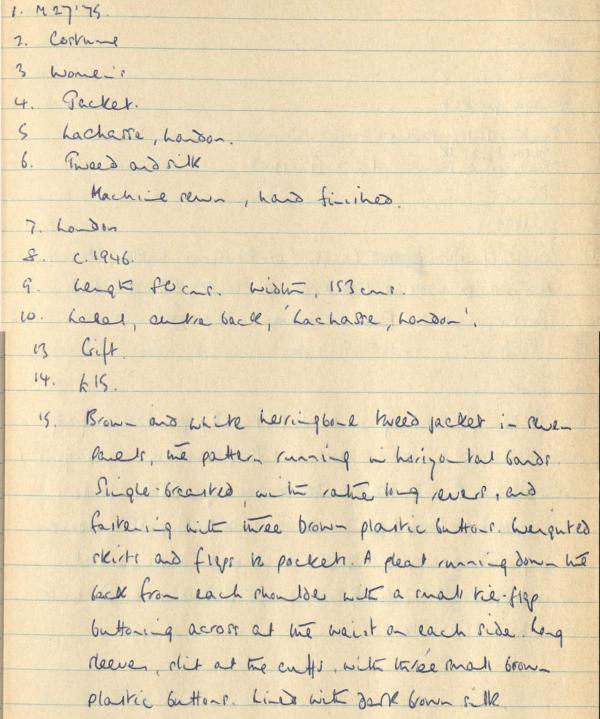 1. M 27'75.
2. Costume
3 Women's
4. Jacket.
5 Lachasse, London.
6. Tweed and silk
Machine sewn, hand finished.
7. London
8. c.1946.
9. Length 80 cms. Width, 153 cms.
10. Label, centre back, 'Lachasse, London'.
13 Gift.
14. £15.
15. Brown and white herringbone tweed jacket in seven
panels, the pattern running in horizontal bands.
Single-breasted, with rather long revers, and
fastening with three brown plastic buttons. Weighted
skirts and flaps to pockets. A pleat running down the
back from each shoulder with a small tie-flap
buttoning across at the waist on each side. Long
sleeves, slit at the cuffs, with three small brown
plastic buttons. Lined with dark brown silk.